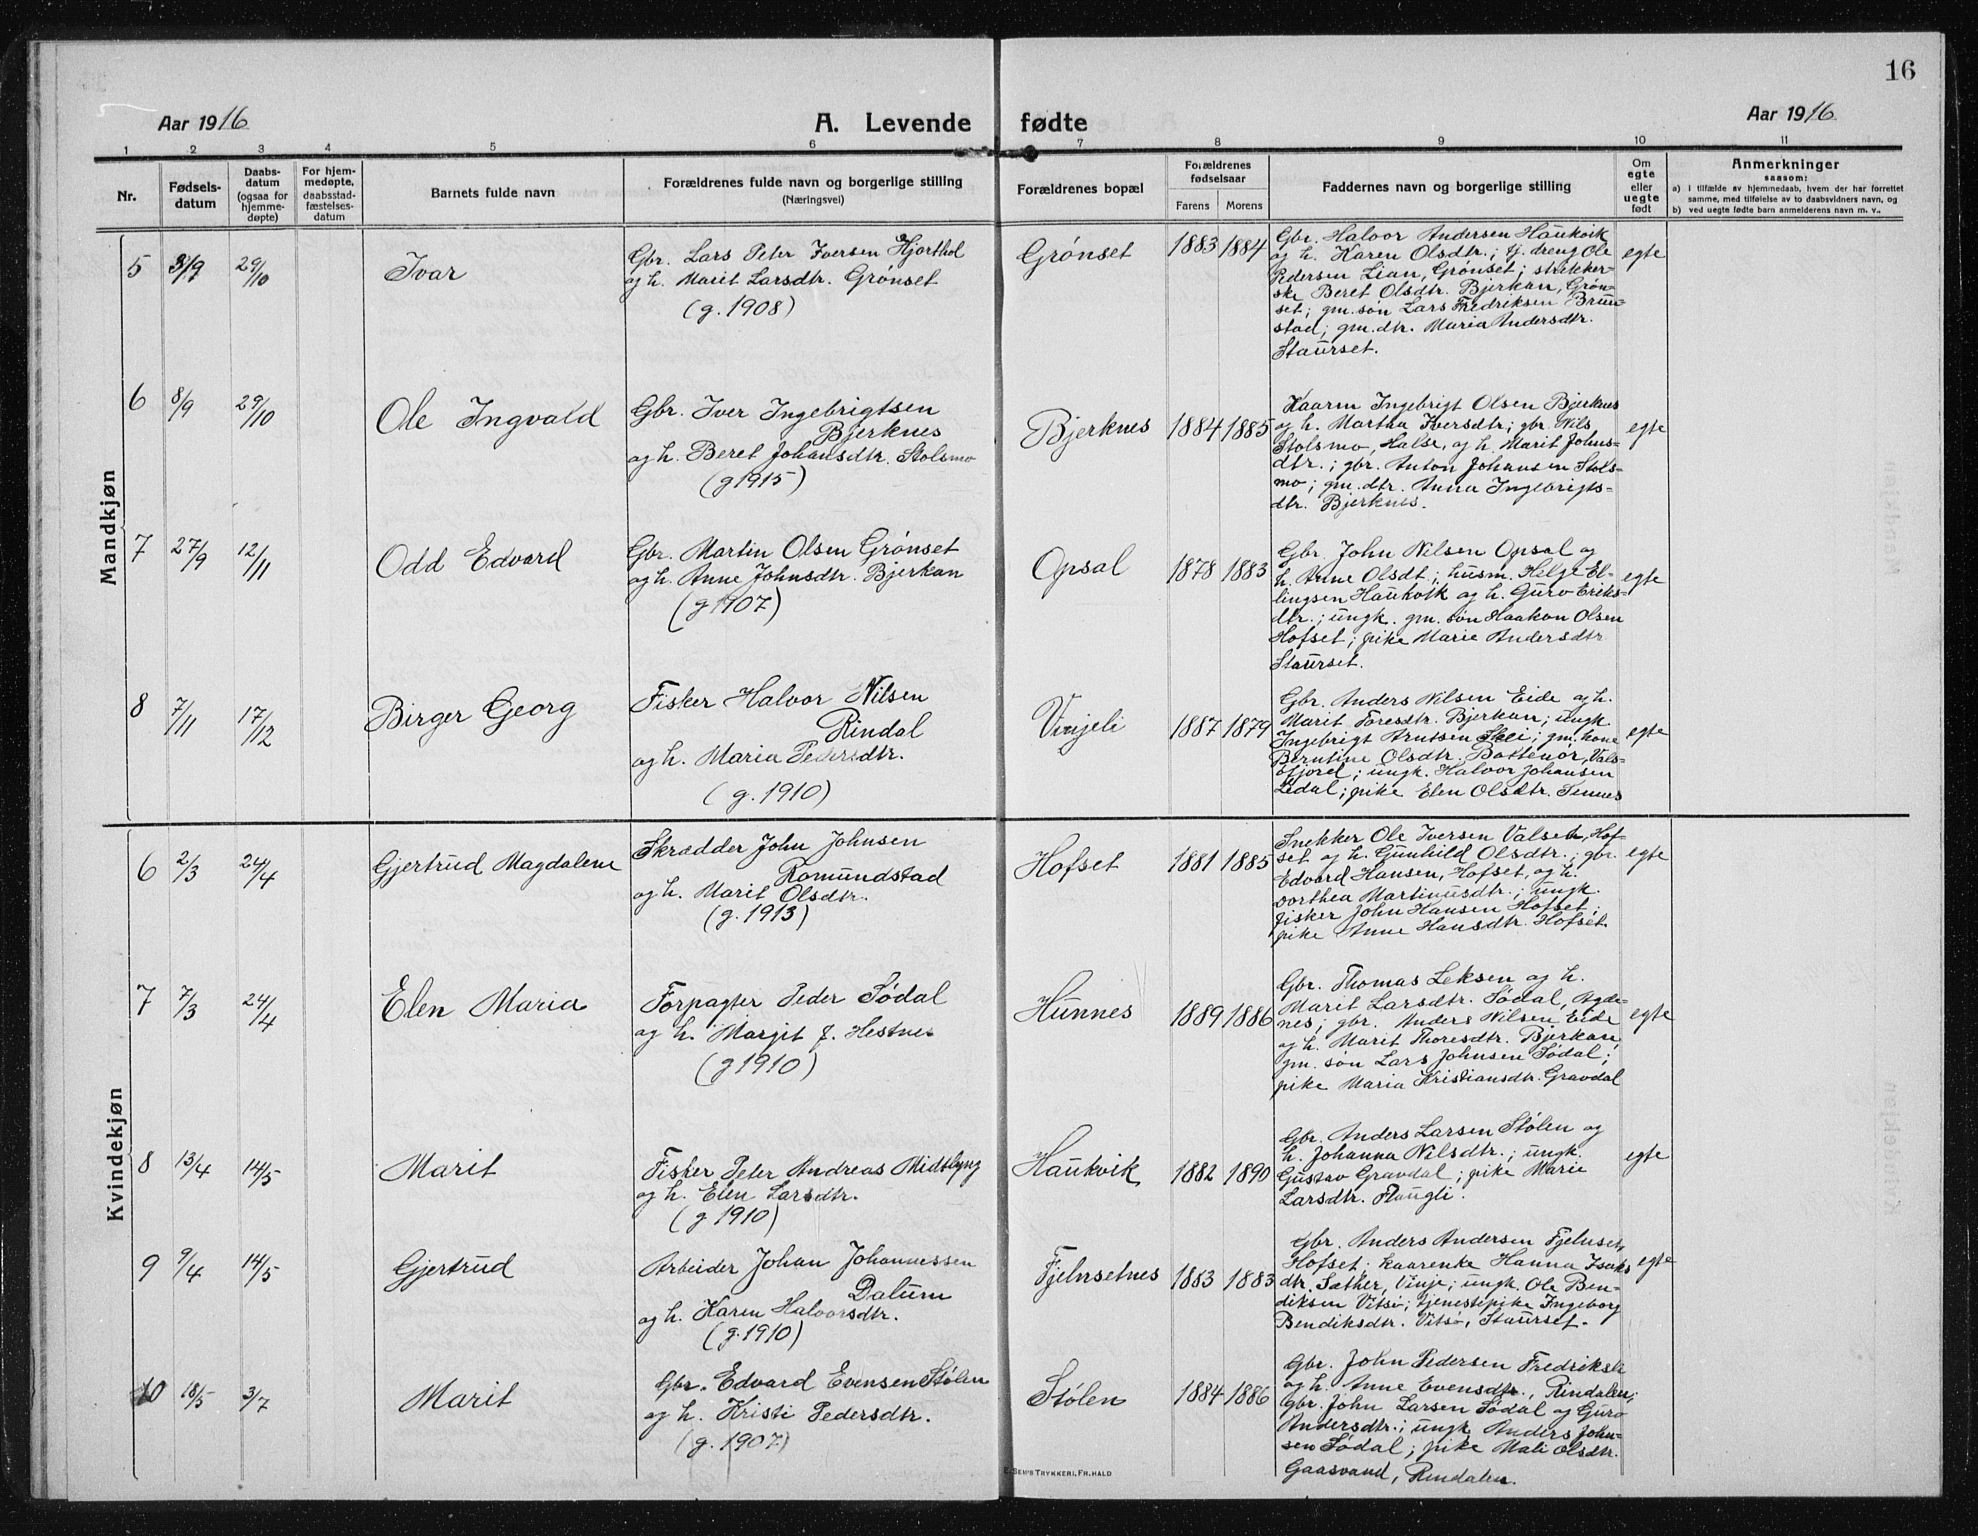 16
Aar 1916
A. Levende fødte
Aar 1916
1 2 3 4 5 6 7 8 9 10 11
Nr.
Fødsels-
datum
Daabs-
datum
(ogsaa for
hjemme-
døpte)
For hjem-
medøpte,
daabsstad-
fæstelses-
datum
Barnets fulde navn
Forældrenes fulde navn og borgerlige stilling
(Næringsvei)
Forældrenes bopæl
Forældrenes
fødselsaar
Farens Morens
Faddernes navn og borgerlige stilling
Om
egte
eller
uegte
født
Anmerkninger
saasom:
a) i tilfælde av hjemmedaab, hvem der har forrettet
samme, med tilføielse av to daabsvidners navn, og
b) ved uegte fødte barn anmelderens navn m. v.,
Mandkjøn
5 3/9 29/10 Ivar
Gbr. Lars Peter Iversen Hjorthol
og h. Marit Larsdtr. Grønset
(g. 1908)
Grønset 1883 1884
Gbr. Halvor Andersen Haukvik
og h. Karen Olsdtr.; tj. dreng Ole
Pedersen Lian, Grønset; strikker-
ske Beret Olsdtr. Bjerkan, Grøn-
set; gm. søn Lars Fredriksen Brun-
stad; gm. dtr. Maria Andersdtr.
Staurset.
egte
6 8/9 29/10 Ole Ingvald
Gbr. Iver Ingebrigtsen
Bjerknes
og h. Beret Johansdtr. Stolsmo
(g 1915)
Bjerknes 1884 1885
Kaarm Ingebrigt Olsen Bjerknes
og h. Martha Iversdtr; gbr. Nils
Stolsmo, Halse, og h. Marit Johns-
dtr.; gbr. Anton Johansen Stols-
mo; gm. dtr. Anna Ingebrigts-
dtr. Bjerknes.
egte
7 27/9 12/11 Odd Edvard
Gbr. Martin Olsen Grønset
og h. Anne Johnsdtr. Bjerkan
(g 1907)
Opsal 1878 1883
Gbr. John Nilsen Opsal og
h. Anne Olsdt; husm. Helge El-
lingsen Haukvik og h. Guro Eriks-
dtr.; ungk. gm. søn Haakon Olsen
Hofset; pike Marie Andersdtr
Staurset.
egte
8 7/11 17/12 Birger Georg
Fisker Halvor Nilsen
Rindal
og h. Maria Pedersdtr.
(g. 1910)
Vinjeli 1887 1879
Gbr. Anders Nilsen Eide og h.
Marit Toresdtr. Bjerkan; ungk.
Ingebrigt Arntsen Skei; gm. kone
Berntine Olsdtr. Bottenør, Vals-
øfjord; ungk. Halvor Johansen
Lidal; pike Elen Olsdtr. Tennes
egte
Kvindekjøn
6 2/3 24/4 Gjertrud Magdalene
Skrædder John Johnsen
Romundstad
og h. Marit Olsdtr.
(g. 1913)
Hofset 1881 1885
Snekker Ole Iversen Valset, Hof-
set og h. Gunhild Olsdtr.; gbr.
Edvard Hansen, Hofset, og h.
Dorthea Martinusdtr.; ungk.
fisker John Hansen Hofset;
pike Anne Hansdtr. Hofset.
egte
7 7/3 24/4 Elen Maria
Forpagter Peder Sødal
og h. Margit f. Hestnes
(g 1910)
Hunnes 1889 1886
Gbr. Thomas Leksen og h.
Marit Larsdtr. Sødal, Agde-
nes; gbr. Anders Nilsen Eide
og h. Marit Thoresdtr. Bjerkan;
gm. søn Lars Johnsen Sødal;
pike Maria Kristiansdtr. Gravdal
egte
8 13/4 14/5 Marit
Fisker Peter Andreas Midtlyng
og h. Elen Larsdtr.
(g 1910)
Haukvik 1882 1890
Gbr. Anders Larsen Stølen og
h. Johanna Nilsdtr.; ungk.
Gustav Gravdal; pike Marie
Larsdtr. Haugli.
egte
9 9/4 14/5 Gjertrud
Arbeider Johan Johannessen
Dalum
og h. Karen Halvorsdtr.
(g. 1910)
Fjelnsetnes 1883 1883
Gbr. Anders Andersen Fjelnset,
Hofset; kaarenke Hanna Isaks
dtr. Sæther, Vinje; ungk. Ole Ben-
diksen Vitsø; tjenestepike Ingeborg
Bendiksdtr. Vitsø, Staurset.
egte
10 18/5 3/7 Marit
Gbr. Edvard Evensen Stølen
og h. Kristi Pedersdtr.
(g. 1907)
Stølen 1884 1886
Gbr. John Pedersen Fredriksli
og h. Anne Evensdtr., Rindalen;
gbr. John Larsen Sødal og Guro
Andersdtr.; ungk. Anders John-
sen Sødal; pike Mali Olsdtr.
Gaasvand, Rindalen.
E. SEM'S TRYKKERI, FR.HALD